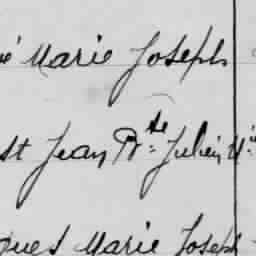 né Marie Joseph
st Jean Bte Julien U
ques Marie Joseph